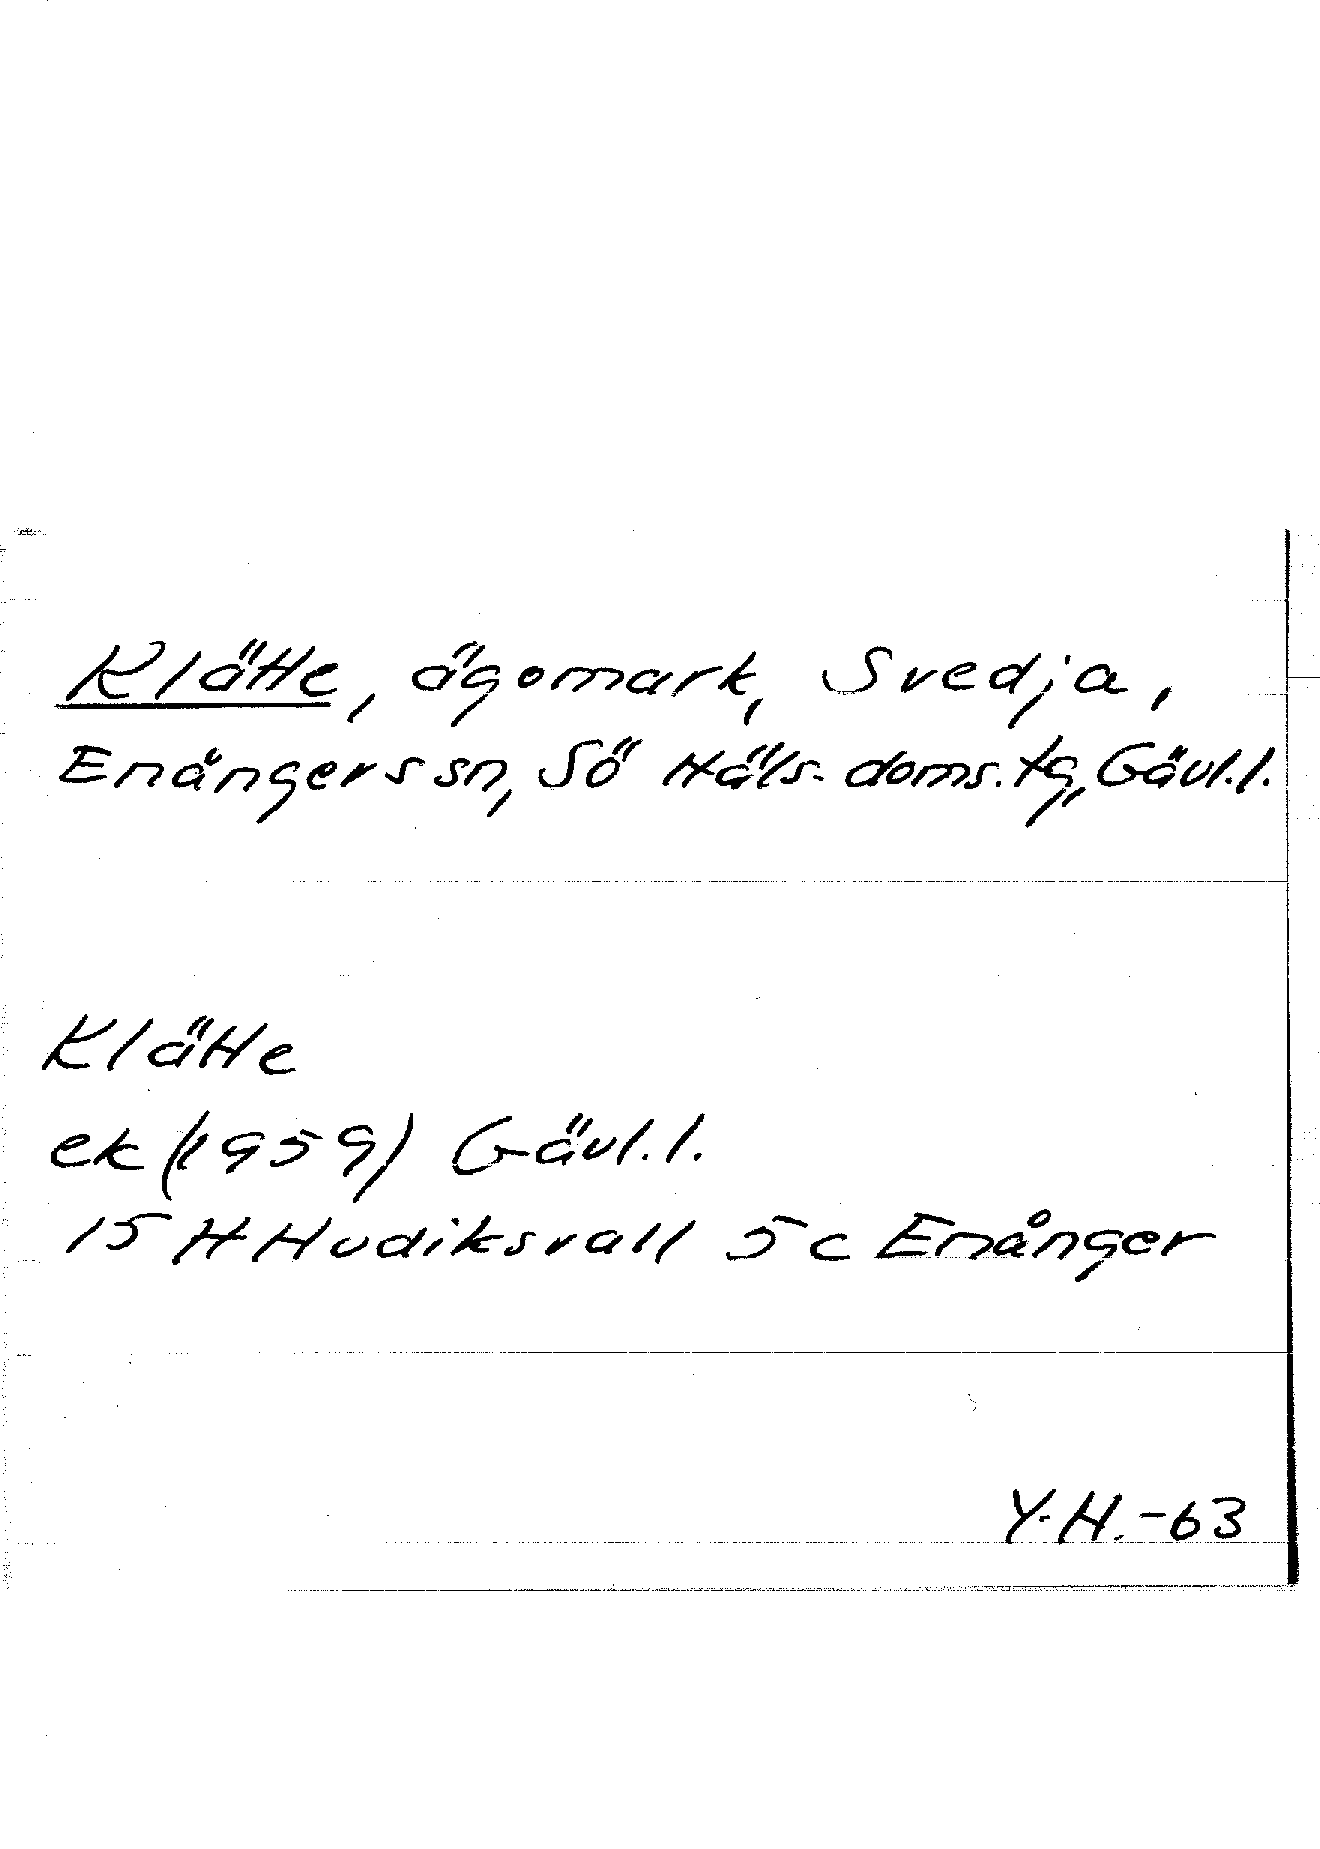 Klätte, ägomark, Svedja,
Enångers sn, Sö Häls. doms. tg, Gävl.l.
Klätte
ek (1959) Gävl.l.
15 H Hudiksvall 5 c Enånger
Y.H.-63